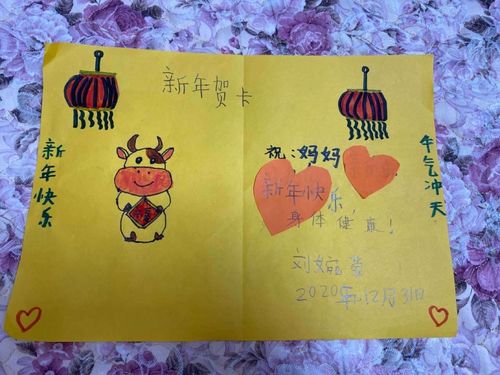 新年贺卡
新年快乐
祝：妈妈
新年快乐，
身体健康！
2020年12月31日
牛气冲天